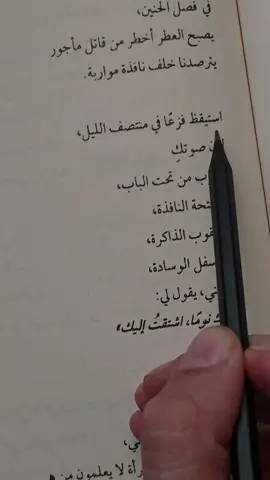 في فصل الحنين،
يصبح العطر أخطر من قاتل مأجور
يترصدنا خلف نافذة مواربة.
استيقظ فزعًا في منتصف الليل،
صوتكِ
من تحت الباب،
النافذة،
الذاكرة،
الوسادة،
يقول لي:
نومًا، اشتقتُ إليك»
لا يعلمون من